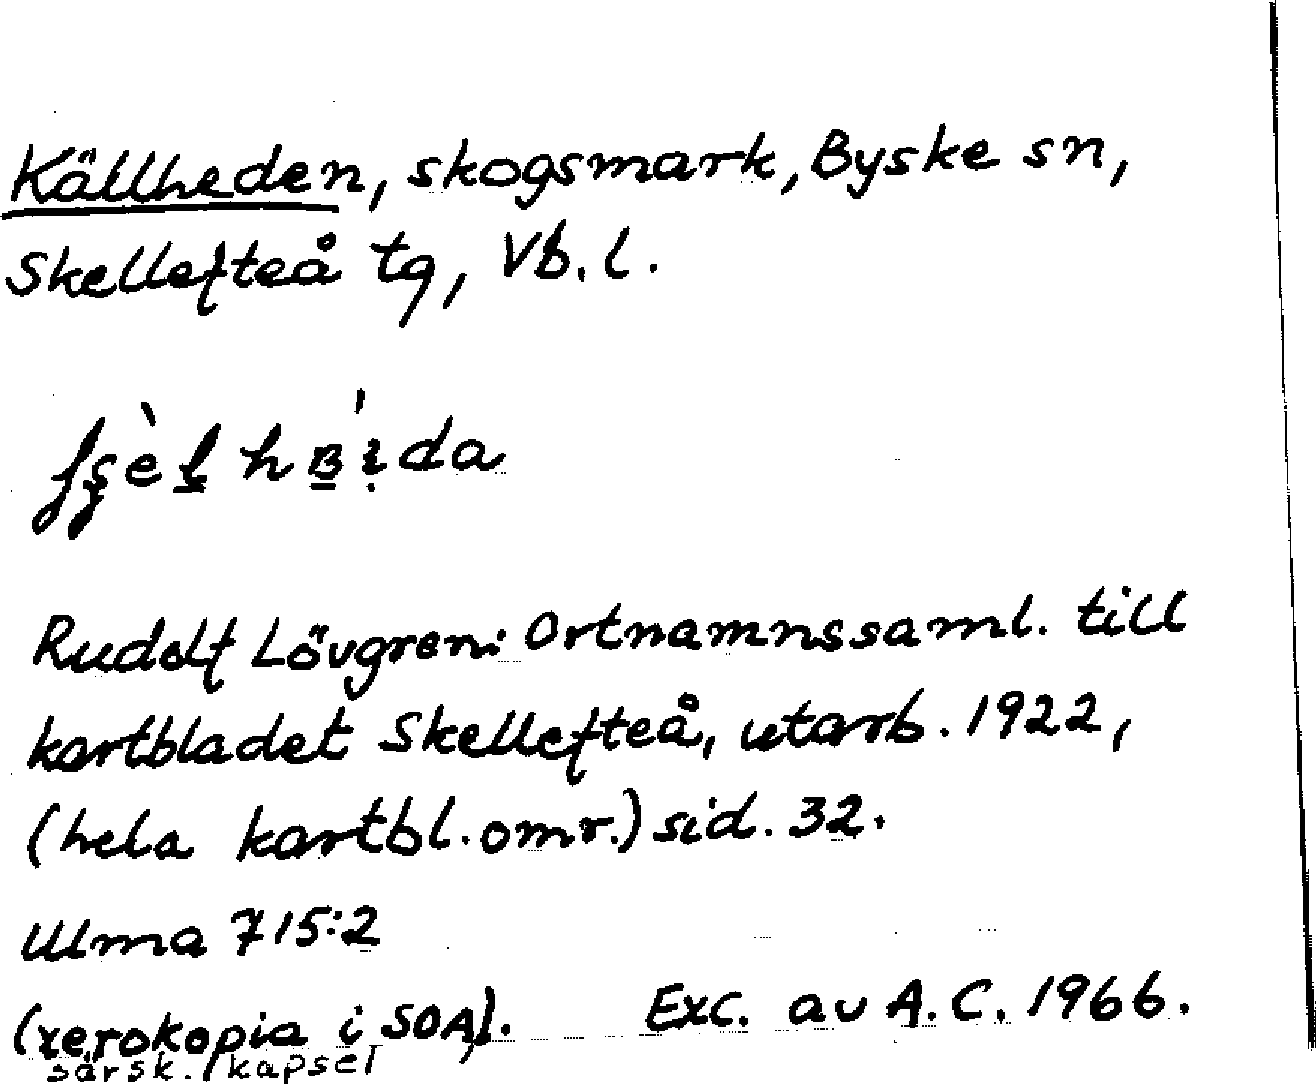 Källheden, skogsmark, Byske sn,
Skellefteå tg, Vb. l.
Rudolf Lövgren: Ortnamnssaml. till
kartbladet Skellefteå, utarb. 1922,
(hela kartbl.omr.) sid. 32.
Ulma 715:2
(xerokopia i SOA). Exc. av A. C. 1966.
särsk. kapsel